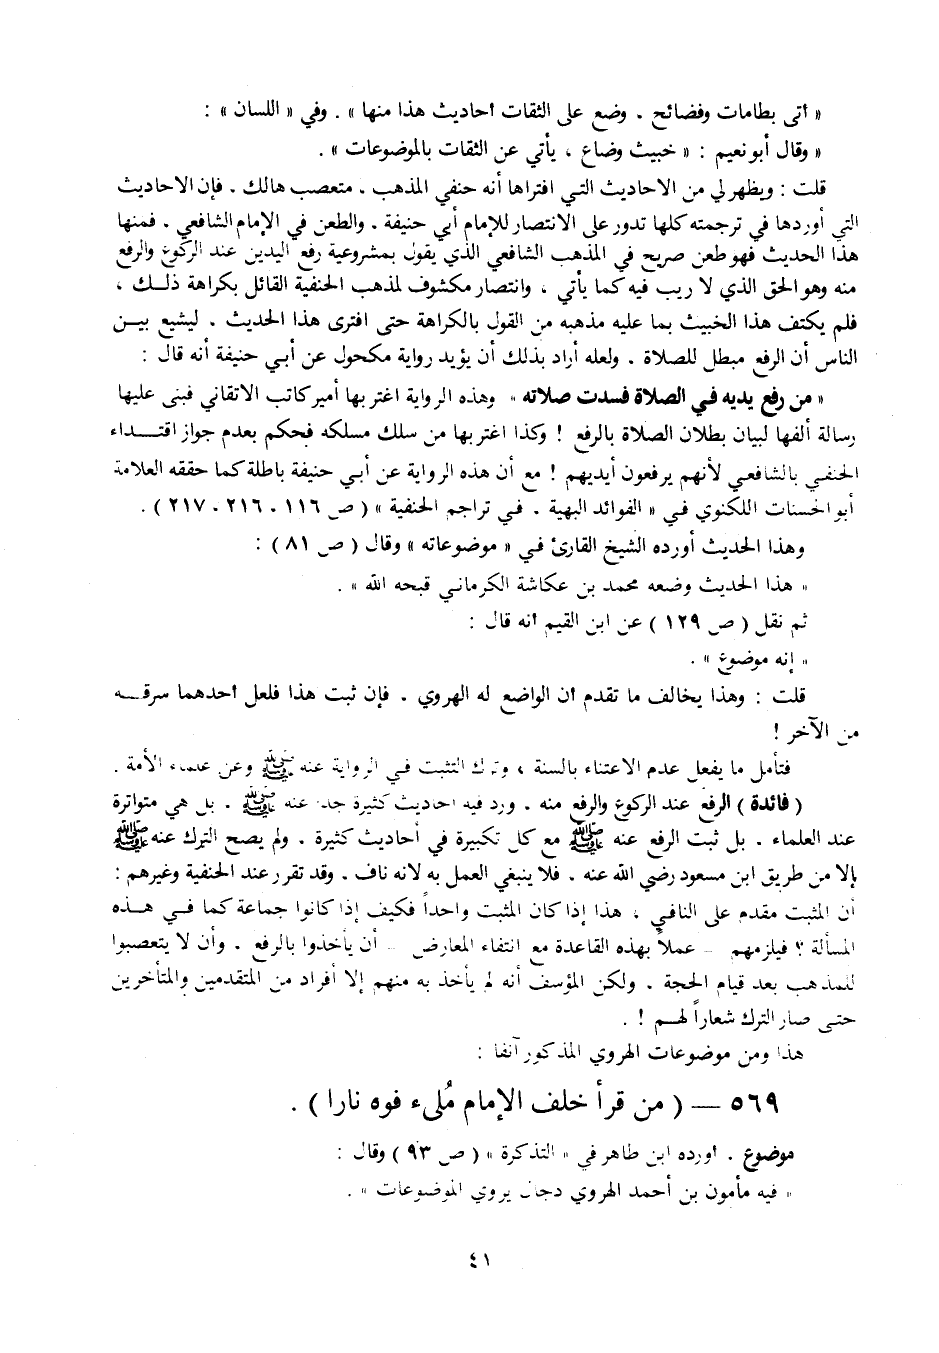 « أتى بطامات وفضائح . وضع على الثقات أحاديث هذا منها » . وفي « اللسان » :
« وقال أبو نعيم : « خبيث وضاع ، يأتي عن الثقات بالموضوعات » .
قلت : ويظهر لي من الاحاديث التي افتراها أنه حنفي المذهب . متعصب هالك . فإن الاحاديث
التي أوردها في ترجمته كلها تدور على الانتصار للإمام أبي حنيفة . والطعن في الإمام الشافعي . فمنها
هذا الحديث فهو طعن صريح في المذهب الشافعي الذي يقول بمشروعية رفع اليدين عند الركوع والرفع
منه وهو الحق الذي لا ريب فيه كما يأتي ، وانتصار مكشوف لمذهب الحنفية القائل بكراهة ذلك ،
فلم يكتف هذا الخبيث بما عليه مذهبه من القول بالكراهة حتى افترى هذا الحديث . ليشيع بين
الناس أن الرفع مبطل للصلاة . ولعله أراد بذلك أن يؤيد رواية مكحول عن أبي حنيفة أنه قال :
« من رفع يديه في الصلاة فسدت صلاته » وهذه الرواية اغتر بها أمير كاتب الاتقاني فبنى عليها
رسالة ألفها لبيان بطلان الصلاة بالرفع ! وكذا اغتر بها من سلك مسلكه فحكم بعدم جواز اقتداء
الحنفي بالشافعي لأنهم يرفعون أيديهم ! مع أن هذه الرواية عن أبي حنيفة باطلة كما حققه العلامة
أبو الحسنات اللكنوي في « الفوائد البهية . في تراجم الحنفية » ( ص ١١٦ . ٢١٦ . ٢١٧ ) .
وهذا الحديث أورده الشيخ القارئ في « موضوعاته » وقال ( ص ٨١ ) :
« هذا الحديث وضعه محمد بن عكاشة الكرماني قبحه الله » .
ثم نقل ( ص ١٢٩ ) عن ابن القيم انه قال :
« إنه موضوع » .
قلت : وهذا يخالف ما تقدم ان الواضع له الهروي . فإن ثبت هذا فلعل احدهما سرقه
من الآخر !
فتأمل ما يفعل عدم الاعتناء بالسنة ، وترك التثبت في الرواية عنه ﷺ وعن علماء الأمة .
( فائدة ) الرفع عند الركوع والرفع منه . ورد فيه احاديث كثيرة جدا عنه ﷺ . بل هي متواترة
عند العلماء . بل ثبت الرفع عنه ﷺ مع كل تكبيرة في أحاديث كثيرة . ولم يصح الترك عنه ﷺ
إلا من طريق ابن مسعود رضي الله عنه . فلا ينبغي العمل به لانه ناف . وقد تقرر عند الحنفية وغيرهم :
أن المثبت مقدم على النافي ، هذا إذا كان المثبت واحداً فكيف إذا كانوا جماعة كما في هذه
المسألة ؟ فيلزمهم – عملاً بهذه القاعدة مع انتفاء المعارض – أن يأخذوا بالرفع . وأن لا يتعصبوا
للمذهب بعد قيام الحجة . ولكن المؤسف أنه لم يأخذ به منهم إلا أفراد من المتقدمين والمتأخرين
حتى صار الترك شعاراً لهم ! .
هذا ومن موضوعات الهروي المذكور آنفا :
٥٦٩ — ( من قرأ خلف الإمام مُلىء فوه نارا ) .
موضوع . اورده ابن طاهر في « التذكرة » ( ص ٩٣ ) وقال :
« فيه مأمون بن أحمد الهروي دجال يروي الموضوعات » .
٤١